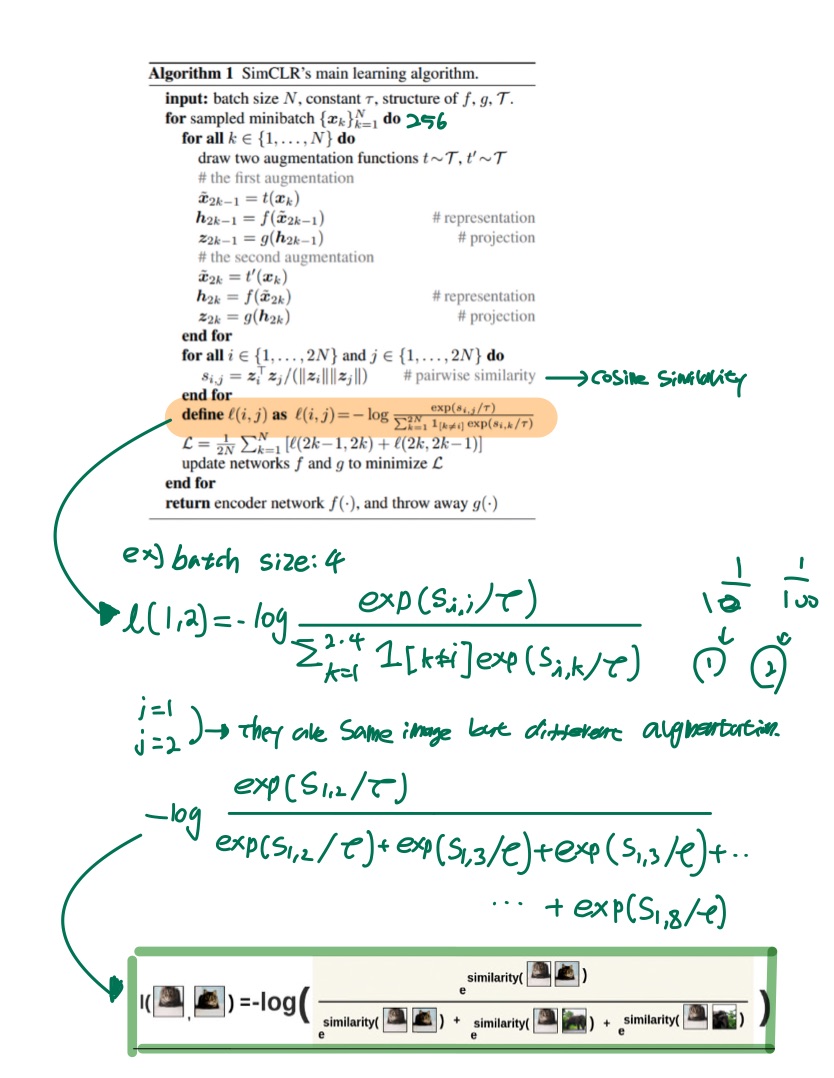 Algorithm 1 SimCLR's main learning algorithm.
input: batch size N, constant τ, structure of f, g, 𝒯.
for sampled minibatch {x_k}_{k=1}^N do 256
for all k ∈ {1, . . . , N} do
draw two augmentation functions t∼𝒯, t′∼𝒯
# the first augmentation
x̃_{2k−1} = t(x_k)
h_{2k−1} = f(x̃_{2k−1}) # representation
z_{2k−1} = g(h_{2k−1}) # projection
# the second augmentation
x̃_{2k} = t′(x_k)
h_{2k} = f(x̃_{2k}) # representation
z_{2k} = g(h_{2k}) # projection
end for
for all i ∈ {1, . . . , 2N} and j ∈ {1, . . . , 2N} do
s_{i,j} = z_i^⊤ z_j/(‖z_i‖‖z_j‖) # pairwise similarity → cosine similarity
end for
define ℓ(i, j) as ℓ(i, j)=− log exp(s_{i,j}/τ) / ∑_{k=1}^{2N} 1_{[k≠i]} exp(s_{i,k}/τ)
ℒ = 1/2N ∑_{k=1}^N [ℓ(2k−1, 2k) + ℓ(2k, 2k−1)]
update networks f and g to minimize ℒ
end for
return encoder network f(·), and throw away g(·)
ex) batch size: 4
l(1,2)=-log exp(S_{i,j}/τ) / ∑_{k=1}^{2·4} 1[k≠i]exp(S_{i,k}/τ)
1/10 1/100
↓ ↓
① ②
j=1
j=2
→ they are same image but different augmentation.
-log exp(S_{1,2}/τ) / exp(S_{1,2}/τ)+exp(S_{1,3}/τ)+exp(S_{1,3}/τ)+··
··· + exp(S_{1,8}/τ)
l( , ) =-log(
e similarity( )
e similarity( ) + e similarity( ) + e similarity( )
)